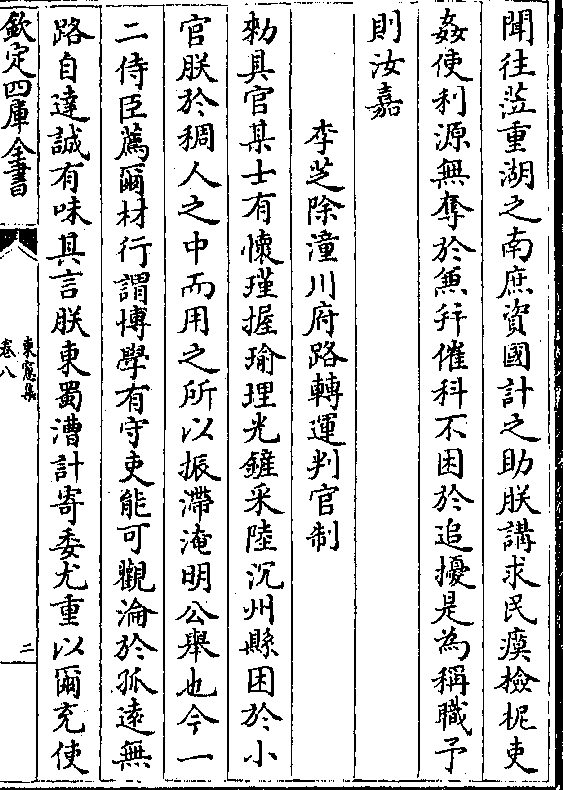 聞往涖重湖之南庶資國計之助朕講求民瘼檢柅吏
姦使利源無奪於兼并催科不困於追擾是為稱職予
則汝嘉
李芝除潼川府路轉運判官制
勑具官某士有懷瑾握瑜理光鏟采陸沉州縣困於小
官朕於稠人之中而用之所以振滯淹明公舉也今一
二侍臣薦爾材行謂博學有守吏能可觀淪於孤遠無
路自達誠有味其言朕東蜀漕計寄委尤重以爾充使
欽定四庫全書
東窻集
卷八
二